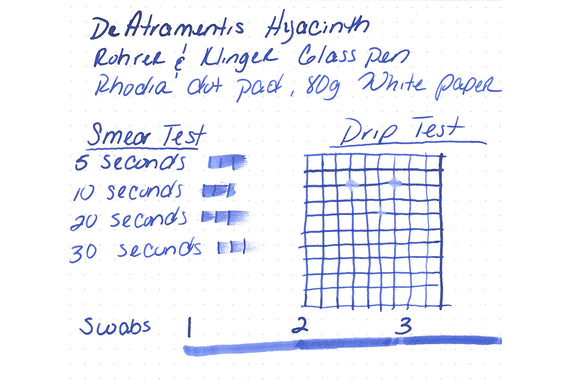 De Atramentis Hyacinth
Rohrer & Klinger Glass pen
Rhodia dot pad, 80g White paper
Smear Test
5 seconds
10 seconds
20 seconds
30 seconds
Drip Test
Swabs 1 2 3